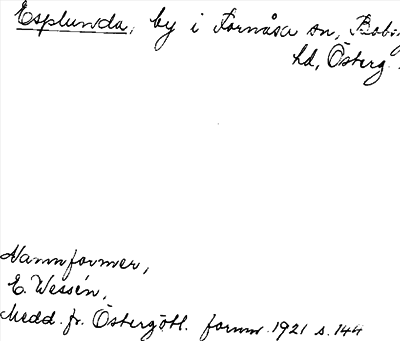 Esplunda, by i Fornåsa sn, Bobg
hd, Österg.
Namnformer,
E. Wessén,
Medd. fr. Östergötl. fornm. 1921 s. 144